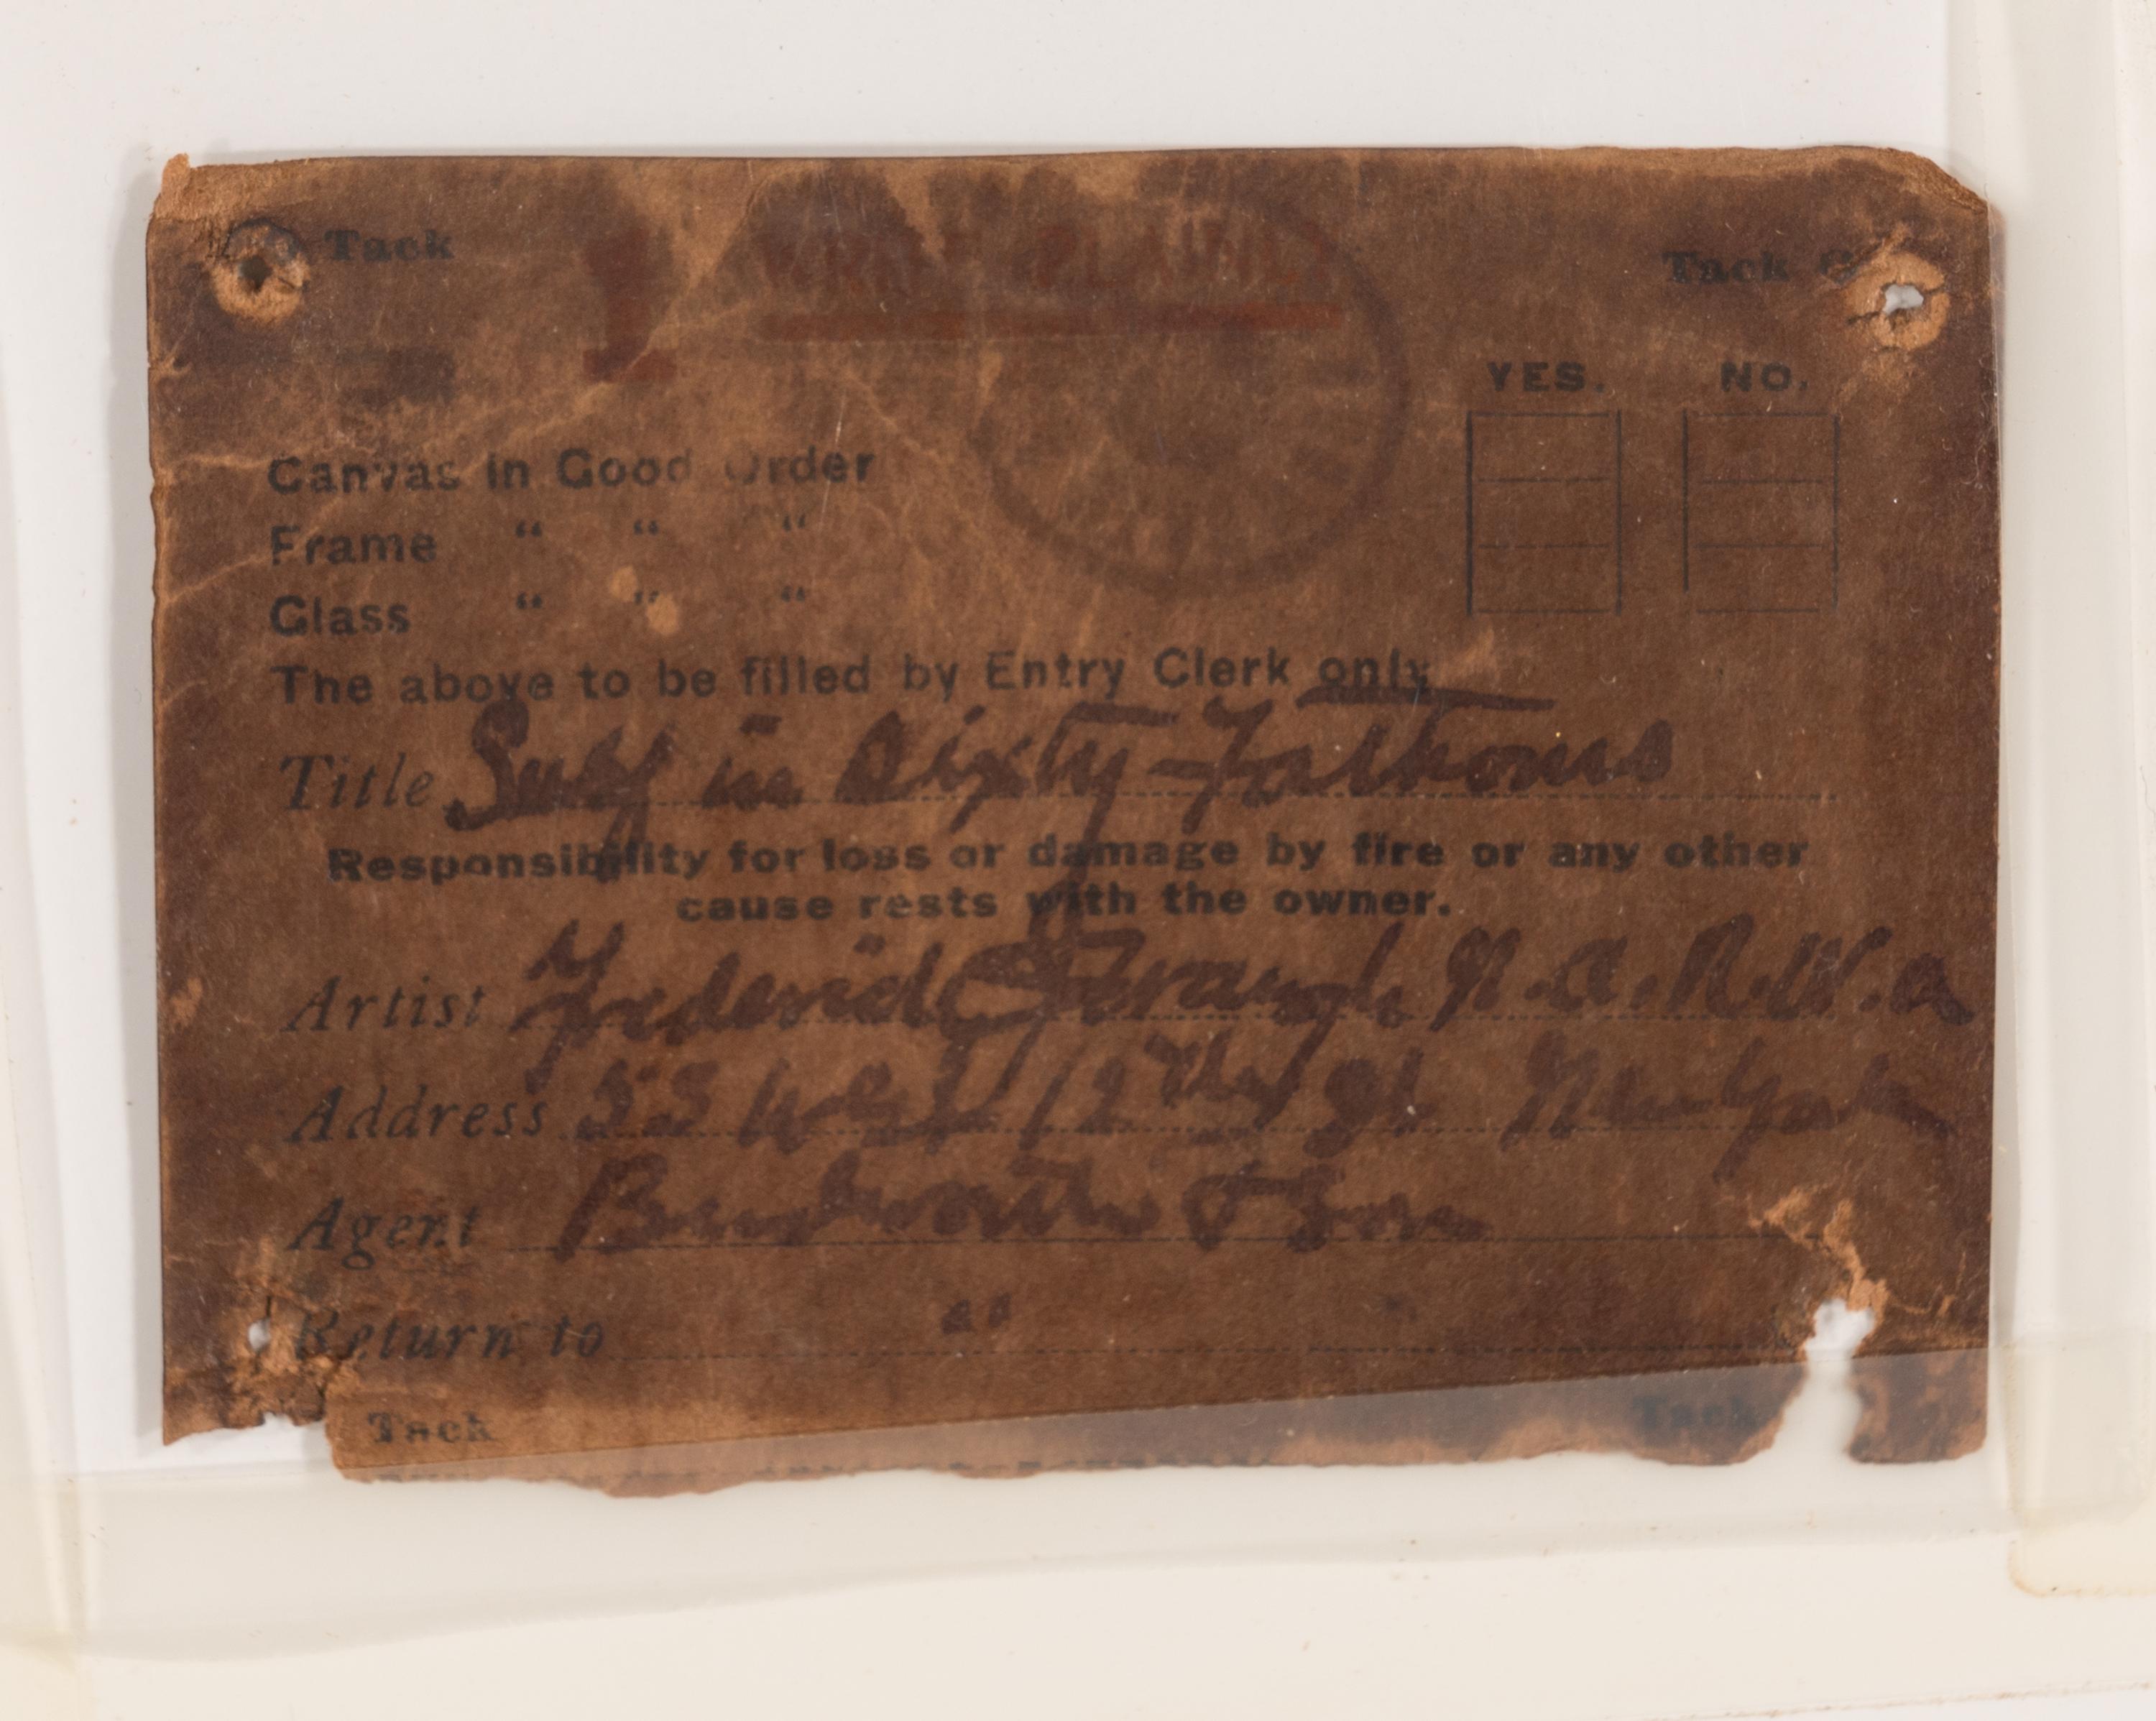 Tack Tack
WRITE PLAINLY
YES. NO.
Canvas in Good Order
Frame " " "
Glass " " "
The above to be filled by Entry Clerk only
Title Surf in Sixty-Fathoms
Responsibility for loss or damage by fire or any other
cause rests with the owner.
Artist Frederick J. Waugh N.A. R.W.A
Address 55 West 12th St New York
Agent Budworth & Son
Return to " "
Tack Tack